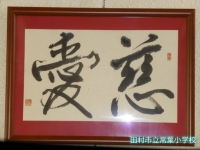 慈愛
田村市立常葉小学校